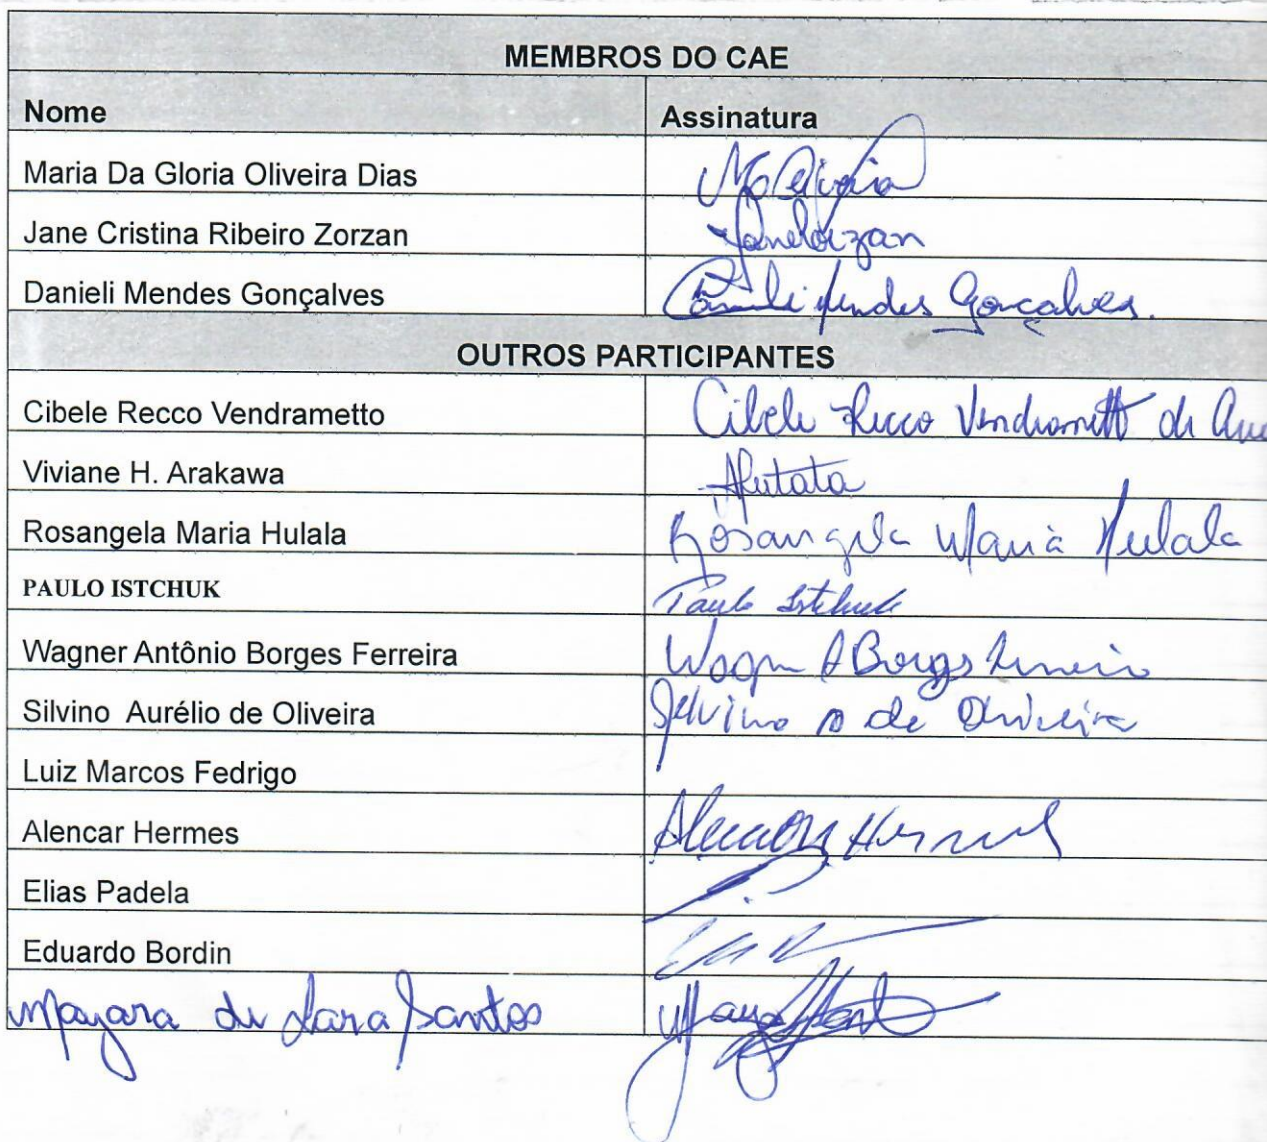 MEMBROS DO CAE
Nome Assinatura
Maria Da Gloria Oliveira Dias
Jane Cristina Ribeiro Zorzan
Danieli Mendes Gonçalves Mendes Gonçalves.
OUTROS PARTICIPANTES
Cibele Recco Vendrametto Cibele Recco Vendrametto de
Viviane H. Arakawa
Rosangela Maria Hulala Rosangela Maria Hulala
PAULO ISTCHUK Paulo Istchuk
Wagner Antônio Borges Ferreira Wagner A Borges Ferreira
Silvino Aurélio de Oliveira Silvino A de Oliveira
Luiz Marcos Fedrigo
Alencar Hermes Alencar Hermes
Elias Padela
Eduardo Bordin
Mayara de Lara Santos